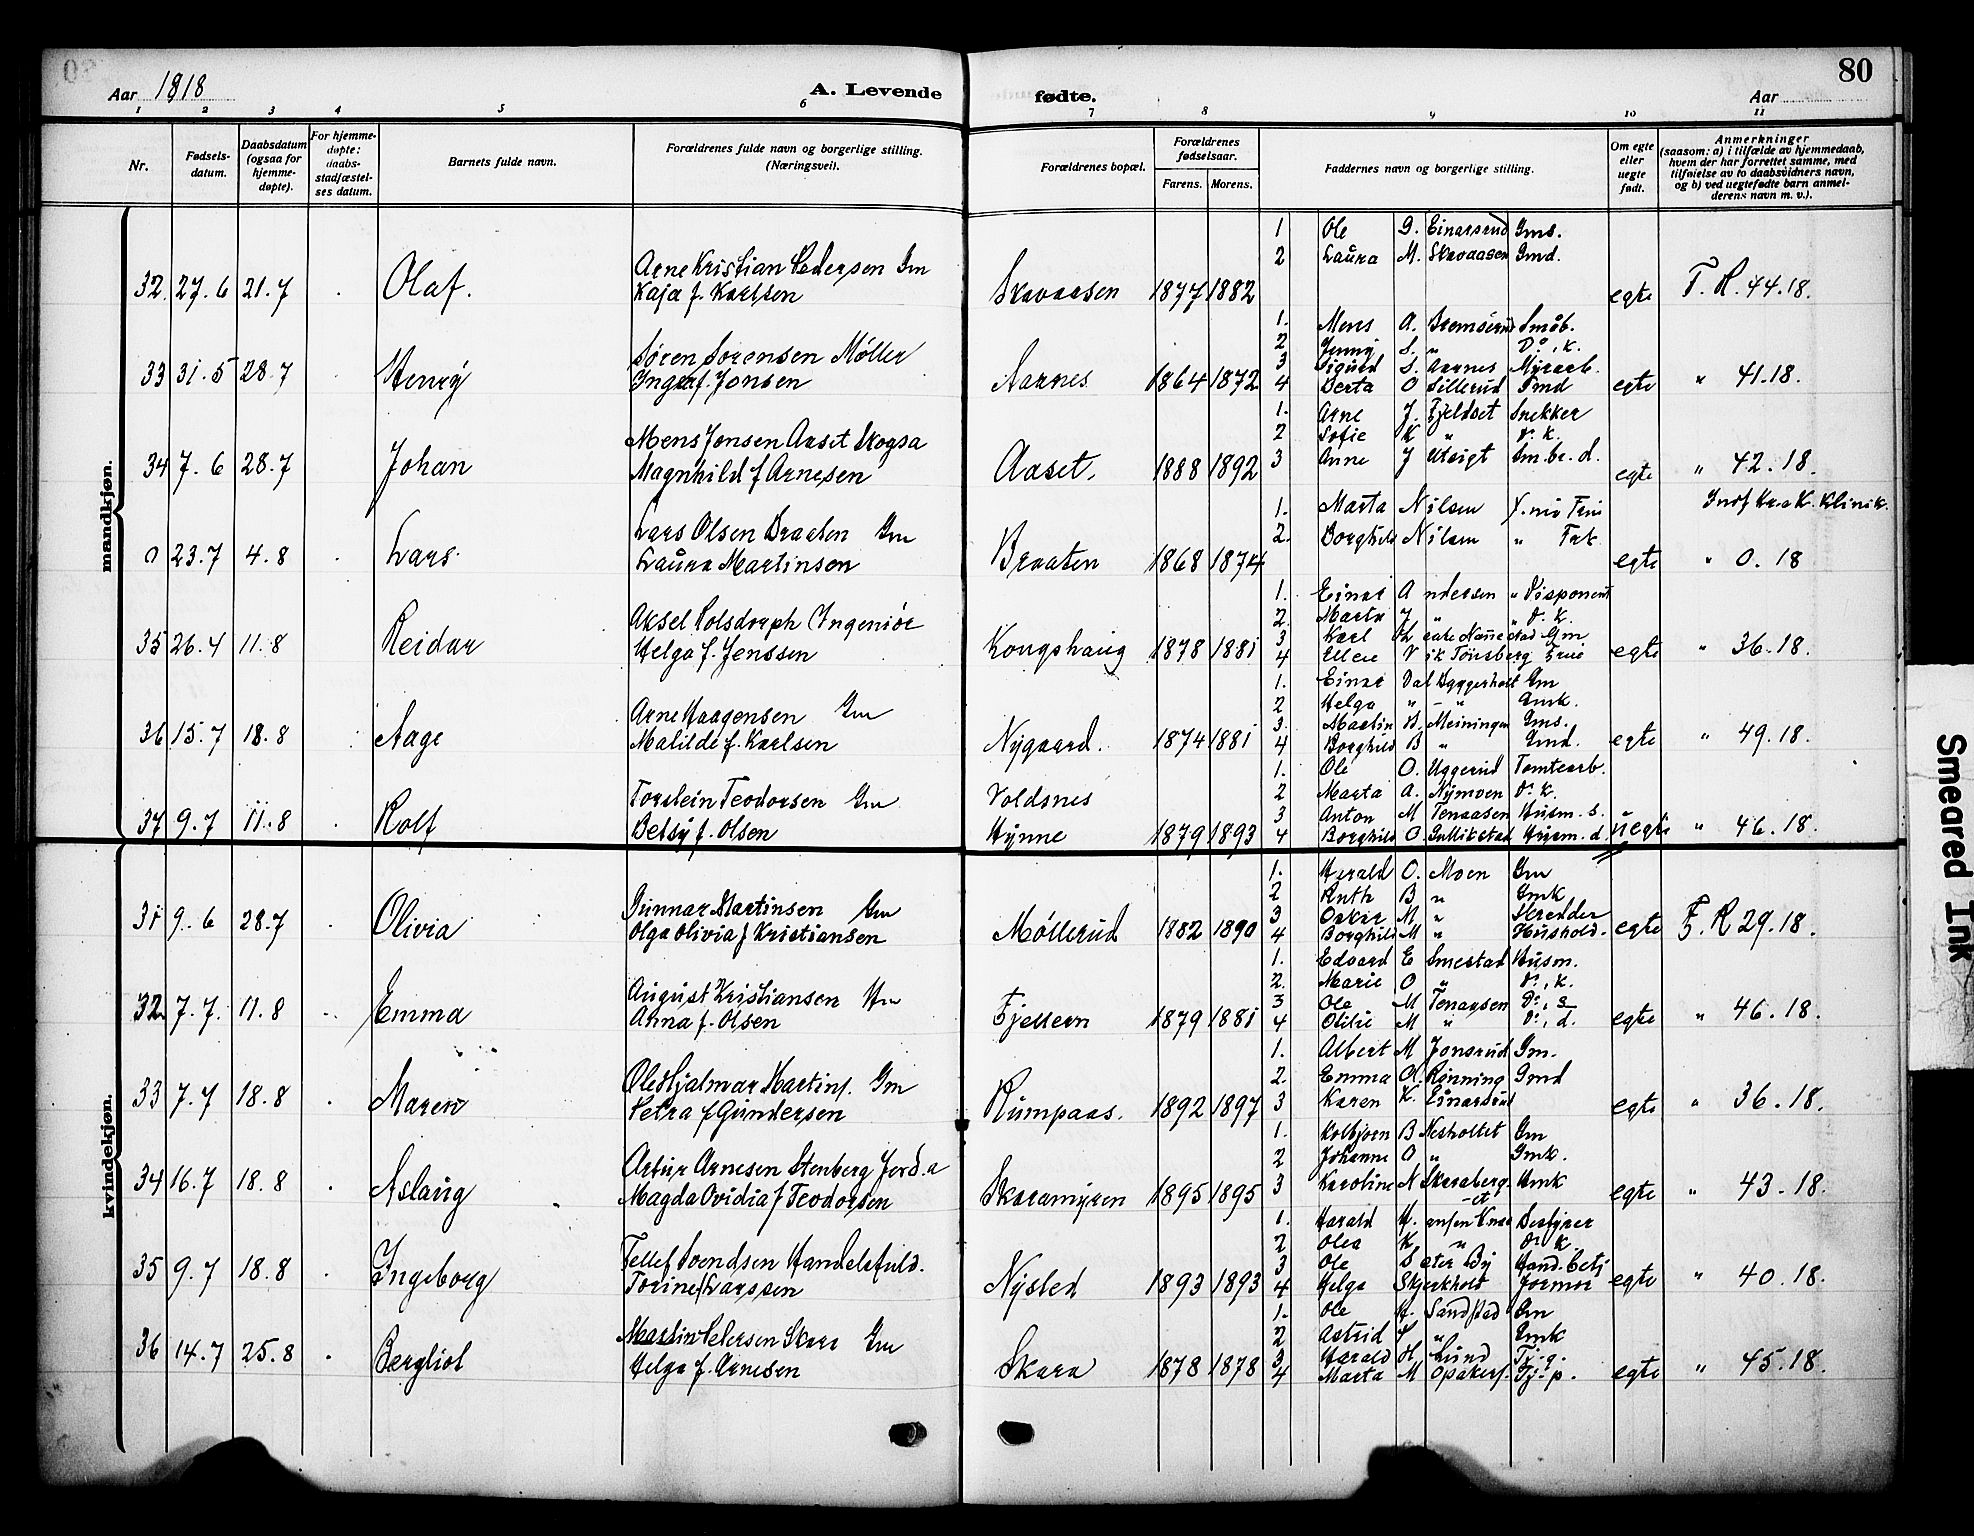 Aar 1918
A. Levende
fødte.
80
Aar
1 2 3 4 5 6 7 8 9 10 11
Nr.
Fødsels-
datum.
Daabsdatum
(ogsaa for
hjemme-
døpte).
For hjemme-
døpte:
daabs-
stadfæstel-
ses datum.
Barnets fulde navn.
Forældrenes fulde navn og borgerlige stilling.
(Næringsvei).
Forældrenes bopæl.
Forældrenes
fødselsaar.
Farens. Morens.
Faddernes navn og borgerlige stilling.
Om egte
eller
uegte
født.
Anmerkninger
(saasom: a) i tilfælde av hjemmedaab,
hvem der har forrettet samme, med
tilføielse av to daabsvidners navn,
og b) ved uegtefødte barn anmel-
derens navn m. v.).
mandkjøn.
32. 27.6 21.7 Olaf. Arne Kristian Pedersen Gm
Kaja f. Karlsen Skovaasen 1877 1882 egte F. R. 44.18.
1 Ole G. Einarsrud Gms.
2 Laura M. Skovaasen Gmd.
33 31.5 28.7 Henry Søren Sorensen Møller
Inga f. Jonsen Aarnes 1864 1872 egte " 41.18.
1. Mens A. Bremsrud Småb.
2 Jenny S. " Do., k.
3 Sigurd S. Aarnes Myrarb.
4 Berta O Sillerud Gmd
34 7.6 28.7 Johan Mens Jonsen Aaset Skogsa
Magnhild f Arnesen Aaset. 1888 1892 egte " 42.18.
1. Arne J. Fjeldset Snekker
2 Sofie K " Do. k.
3 Anne J Utsigt Sm.br.d.
0 23.7 4.8 Lars Lars Olsen Braaten Gm
Laura Martinsen Braaten 1868 1874 egte " 0.18
1. Marta Nilsen Frue
2. Borghild Nilsen " Frk
Kra K. Klinik.
35 26.4 11.8 Reidar Aksel Rolsdorph Ingeniør
Helga f. Jenssen Kongshaug 1878 1881 egte " 36.18.
1. Einar Andersen " Disponent
2. Marta J " " D. K.
3 Karl Gm
4 Ellen Vik Tønsberg Frue
36 15.7 18.8 Aage Arne Haagensen Gm
Matilde f. Karlsen Nygaard. 1874 1881 egte " 49.18.
1. Einar Dal Gm
2 Helga " " Gmk.
3. Martin B. Meiningen Gms.
4 Borghild B " Gmd.
37 9.7 11.8 Rolf Torstein Teodorsen Gm Voldsnes
Betsy f. Olsen Hynne 1879 1893 uegte " 46.18.
1. Ole O. Uggerud Tomtearb.
2 Marta A. Nymoen D. k.
3 Anton M Tenaasen Husm. s.
4 Borghild O. Gullikstad Husm. d.
kvindekjøn.
31 9.6 28.7 Olivia Gunnar Martinsen Gm
Olga Olivia f Kristiansen Møllerud 1882 1890 egte F. R 29.18.
1. Harald O. Moen Gm
2 Ruth B " Gmk
3 Oskar M " Skredder
4 Borghild M " Hushold.
32. 7.7. 11.8 Emma August Kristiansen Hm
Anna f. Olsen Fjellern 1879 1881 egte " 46.18.
1. Edvard E Smestad Husm.
2. Marie O " Do., k.
3 Ole M Tenaasen Do., s
4 Otilie M " Do., d.
33 7.7 18.8 Maren Ole Hjalmar Martins. Gm
Petra f Gundersen Rumpaas. 1892 1897 egte " 36.18.
1. Albert M Jonsrud Gm.
2. Emma A. Rønning Gmd
3 Karen K. Einarsrud
34 16.7 18.8 Aslaug Artur Arnesen Stenberg Jord.a
Magda Ovidia f Teodorsen Skaramyren 1895 1895 egte " 43.18.
1. Kolbjørn B Nesholtet Gm
2 Johanne O " Gmk.
3 Karoline N Skaraberg- Hmk
et
35 9.7 18.8 Ingeborg Tellef Svendsen Handelsfuld.
Torine f Larssen Nysted 1893 1893 egte " 40.18.
1. Harald Hansen Bestyrer
2 Olea K " D. k.
3 Ole Sæter By Hand. betj
4 Helga Skjerkholt Jormor
36 14.7 25.8 Bergliot Martin Pedersen Skara Gm
Helga f. Arnesen Skara 1878 1878 egte " 45.18.
1. Ole H. Sandstad Gm
2 Astrid S " Gmk
3. Harald H Lund Tj. g.
4 Marta M Opakers. Tj. p.
Smeared Ink